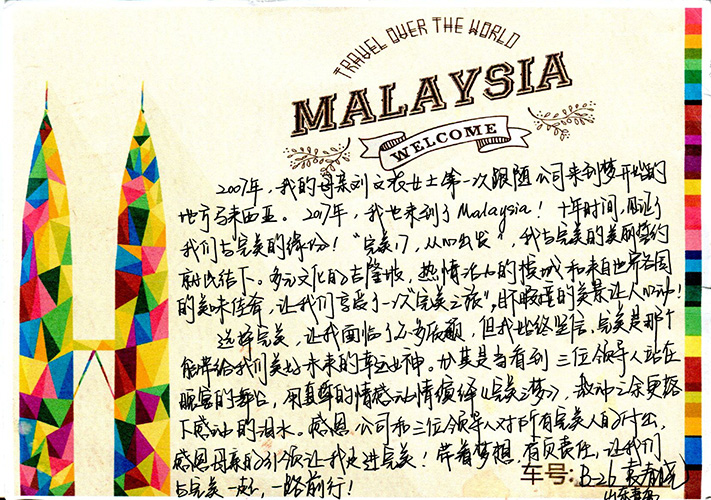 TRAVEL OVER THE WORLD
MALAYSIA
WELCOME
2007年,我的母亲刘文农女士第一次跟随公司来到梦开始的
地方马来西亚。2017年,我也来到了Malaysia!十年时间,见证了
我们与完美的缘份!“完美17,从心出发”,我与完美的美丽签约
就此结下。多元文化的吉隆坡,热情洋溢的槟城和来自世界各国
的美味佳肴,让我们享受了一次“完美之旅”,目不暇接的美景让人心动!
选择完美,让我面临了不少质疑,但我始终坚信,完美是那个
能带给我们美好未来的幸运女神。尤其是当看到三位领导人站在
晚宴的舞台,用真挚的情感动情演绎《完美之梦》,激动之余更落
下感动的泪水。感恩公司和三位领导人对所有完美人的付出,
感恩母亲的引领让我走进完美!带着梦想,肩负责任,让我们
与完美一起,一路前行!
车号:B-26 袁春
山东青岛